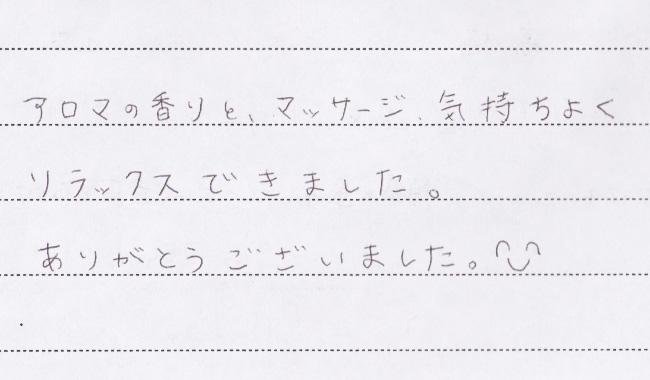 アロマの香りと、マッサージ、気持ちよく
リラックスできました。
ありがとうございました。